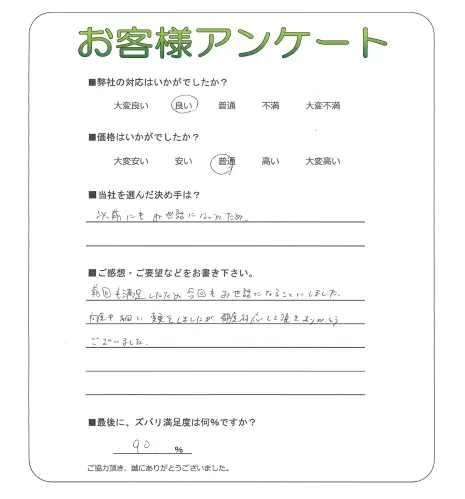 お客様アンケート
■弊社の対応はいかがでしたか？
大変良い 良い 普通 不満 大変不満
■価格はいかがでしたか？
大変安い 安い 普通 高い 大変高い
■当社を選んだ決め手は？
以前にもお世話になったため。
■ご感想・ご要望などをお書き下さい。
前回も満足したため今回もお世話になることにしました。
何度も細い をしましたが 頂きありがとう
ございました。
■最後に、ズバリ満足度は何％ですか？
90 ％
ご協力頂き、誠にありがとうございました。